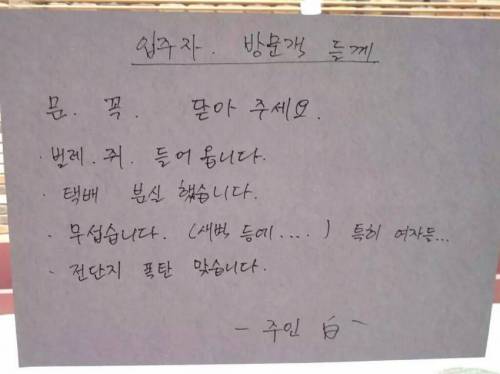 입주자. 방문객 들께
문. 꼭. 닫아 주세요.
· 벌레. 쥐. 들어 옵니다.
· 택배 분실 했습니다.
· 무섭습니다. (새벽 등에....) 특히 여자들...
· 전단지 폭탄 맞습니다.
- 주인 白 -